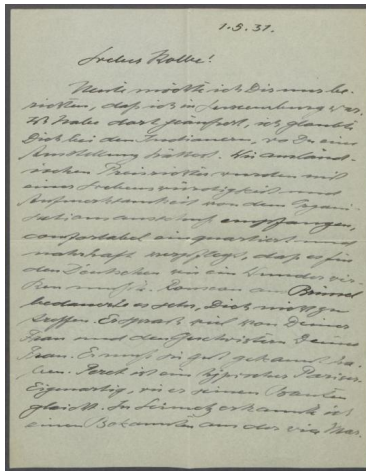 1.5.31.
Lieber Kolbe!
Heute möchte ich Dir nur be-
richten, daß ich in Luxemburg war.
Ich habe dort geäußert, ich glaubte
Dich bei den Indianern, wo Du eine
Ausstellung hättest. Die ausländ-
ischen Preisrichter wurden mit
einer Liebenswürdigkeit und
Aufmerksamkeit von dem Organi-
sationsausschuß empfangen,
comfortabel einquartiert und
nahrhaft verpflegt, daß es für
den Deutschen wie ein Wunder wir-
ken mußte. Rousseau aus Brüssel
bedauerte es sehr, Dich nicht zu
treffen. Er sprach viel von Deiner
Frau und den Geschwistern Deiner
Frau. Er muß sie gut gekannt ha-
ben. Peret ist ein typischer Pariser.
Eigenartig, wie er seinen Bauten
gleicht. In erkannte ich
einen Bekannten aus der via Mar-